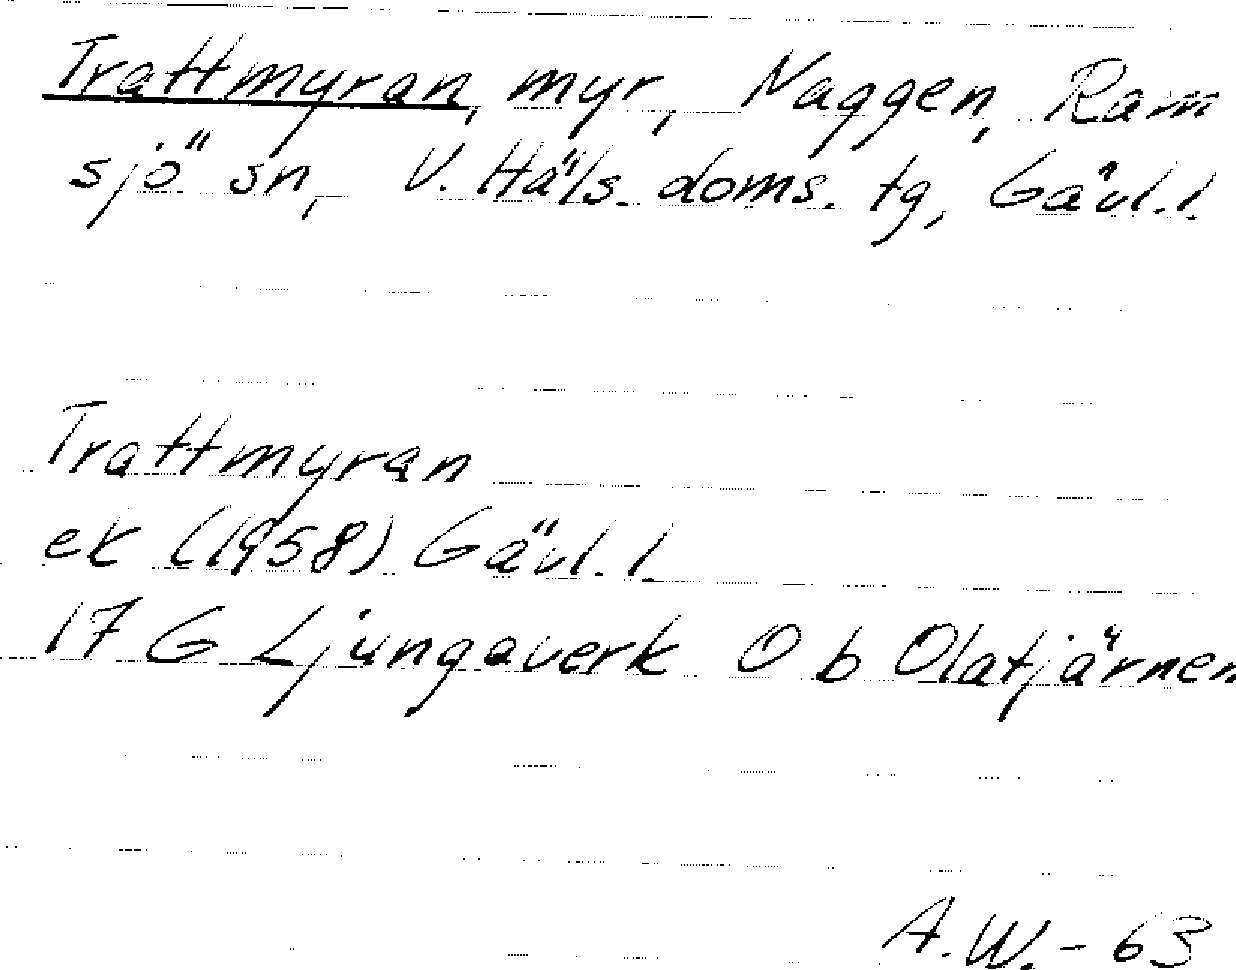 Trattmyran, myr, Naggen, Ram
sjö sn, V. Häls. doms. tg, Gävl. l.
Trattmyran
ek (1958) Gävl. l.
17 G Ljungaverk O b Olatjärnen
A.W. - 63